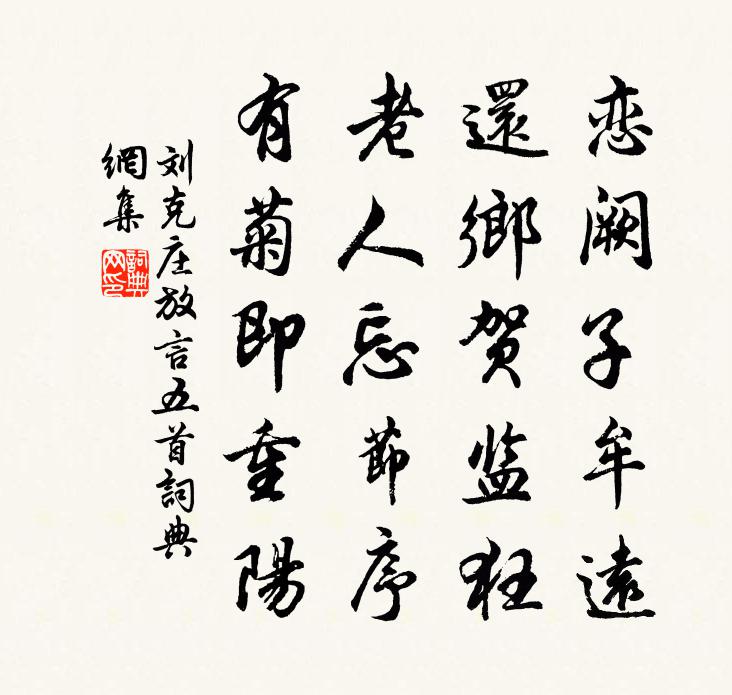 恋阙子牟遠
還鄉贺监狂
老人忘節序
有菊即重陽
刘克庄放言五首詞典
網集
詞典
网印